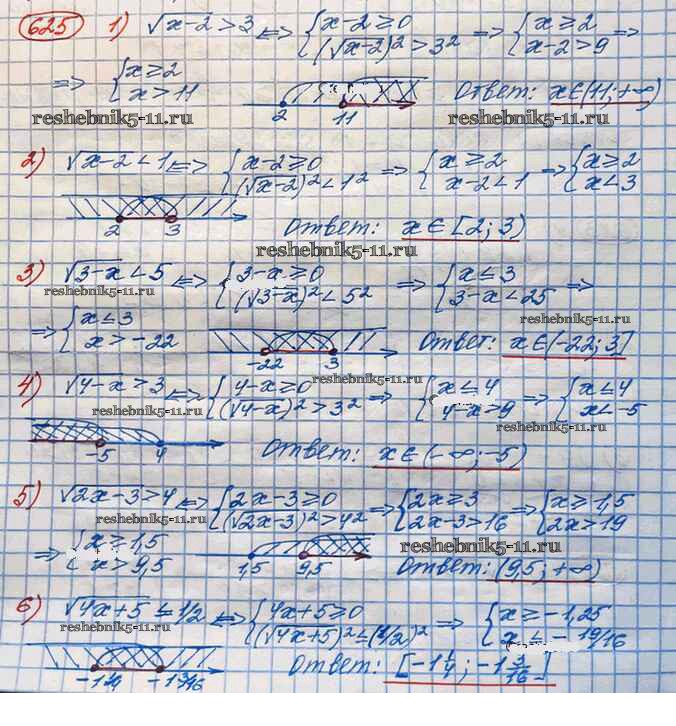 625 1) √x-2 > 3 ⇔ {x-2≥0 {(√x-2)² > 3² ⇒ {x≥2 {x-2>9 ⇒
⇒ {x≥2 {x>11 2 11 Ответ: x∈(11;+∞)
reshebnik5-11.ru reshebnik5-11.ru
2) √x-2 < 1 ⇔ {x-2≥0 {(√x-2)² < 1² ⇒ {x≥2 {x-2<1 ⇒ {x≥2 {x<3
2 3 Ответ: x∈[2;3)
reshebnik5-11.ru
3) √3-x < 5 ⇔ {3-x≥0 {(√3-x)² < 5² ⇒ {x≤3 {3-x<25 ⇒
reshebnik5-11.ru
⇒ {x≤3 {x>-22 -22 3 Ответ: x∈(-22;3]
reshebnik5-11.ru
4) √4-x > 3 ⇔ {4-x≥0 {(√4-x)² > 3² ⇒ {x≤4 {4-x>9 ⇒ {x≤4 {x<-5
reshebnik5-11.ru reshebnik5-11.ru
-5 4 Ответ: x∈(-∞;-5)
5) √2x-3 > 4 ⇔ {2x-3≥0 {(√2x-3)² > 4² ⇒ {2x≥3 {2x-3>16 ⇒ {x≥1,5 {2x>19
reshebnik5-11.ru
⇒ {x≥1,5 {x>9,5 1,5 9,5 Ответ: (9,5;+∞)
reshebnik5-11.ru
6) √4x+5 ≤ 1/2 ⇔ {4x+5≥0 {(√4x+5)² ≤ (1/2)² ⇒ {x≥-1,25 {x≤-19/16
reshebnik5-11.ru
-1 1/4 -1 3/16 Ответ: [-1 1/4; -1 3/16]